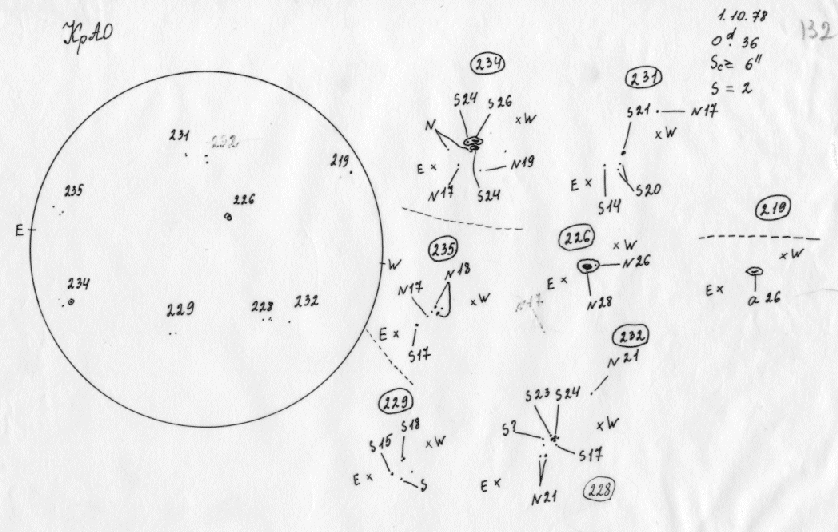 КрАО
1.10.78
132
0ᵈ. 36
Sc= 6"
S = 2
231
232
219
235
226
E
W
234
229
228
232
234
S24
S26
N
W
E
N19
N17
S24
231
S21
N17
W
E
S20
S14
235
N18
N17
W
E
S17
226
W
N26
E
N28
N17
219
W
E
a 26
229
S18
S15
W
E
S
232
N21
S23
S24
S?
W
S17
E
N21
228